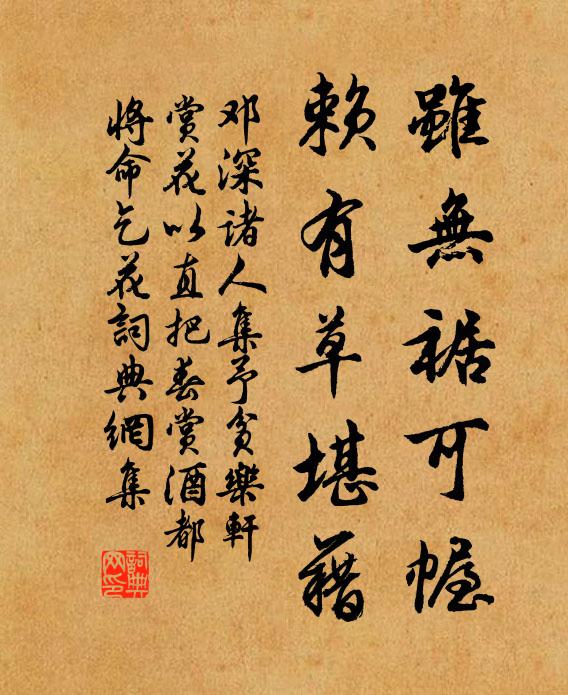 雖無裾可幄
賴有草堪藉
邓深诸人集予贫樂軒
赏花以直把春赏酒都
将命乞花詞典網集
詞典网印